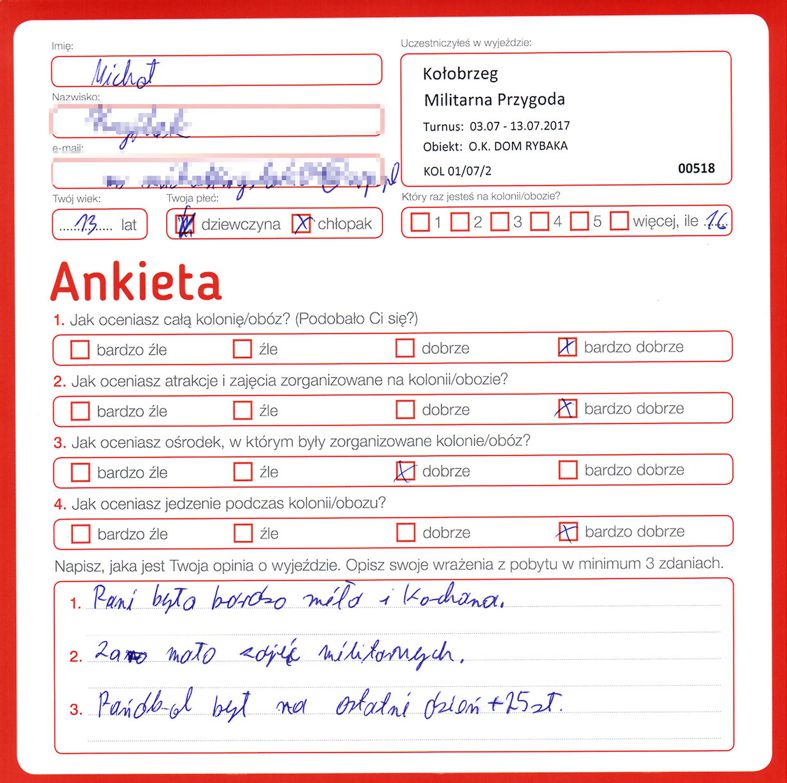 Imię:
Michał
Uczestniczyłeś w wyjeździe:
Kołobrzeg
Militarna Przygoda
Turnus: 03.07 - 13.07.2017
Obiekt: O.K. DOM RYBAKA
KOL 01/07/2 00518
Nazwisko:
e-mail:
Twój wiek:
13 lat
Twoja płeć:
dziewczyna chłopak
Który raz jesteś na kolonii/obozie?
1 2 3 4 5 więcej, ile 16
Ankieta
1. Jak oceniasz całą kolonię/obóz? (Podobało Ci się?)
bardzo źle źle dobrze bardzo dobrze
2. Jak oceniasz atrakcje i zajęcia zorganizowane na kolonii/obozie?
bardzo źle źle dobrze bardzo dobrze
3. Jak oceniasz ośrodek, w którym były zorganizowane kolonie/obóz?
bardzo źle źle dobrze bardzo dobrze
4. Jak oceniasz jedzenie podczas kolonii/obozu?
bardzo źle źle dobrze bardzo dobrze
Napisz, jaka jest Twoja opinia o wyjeździe. Opisz swoje wrażenia z pobytu w minimum 3 zdaniach.
1. Pani była bardzo miła i kochana.
2. Za mało zajęć militarnych.
3. był na ostatni dzień +25zł.